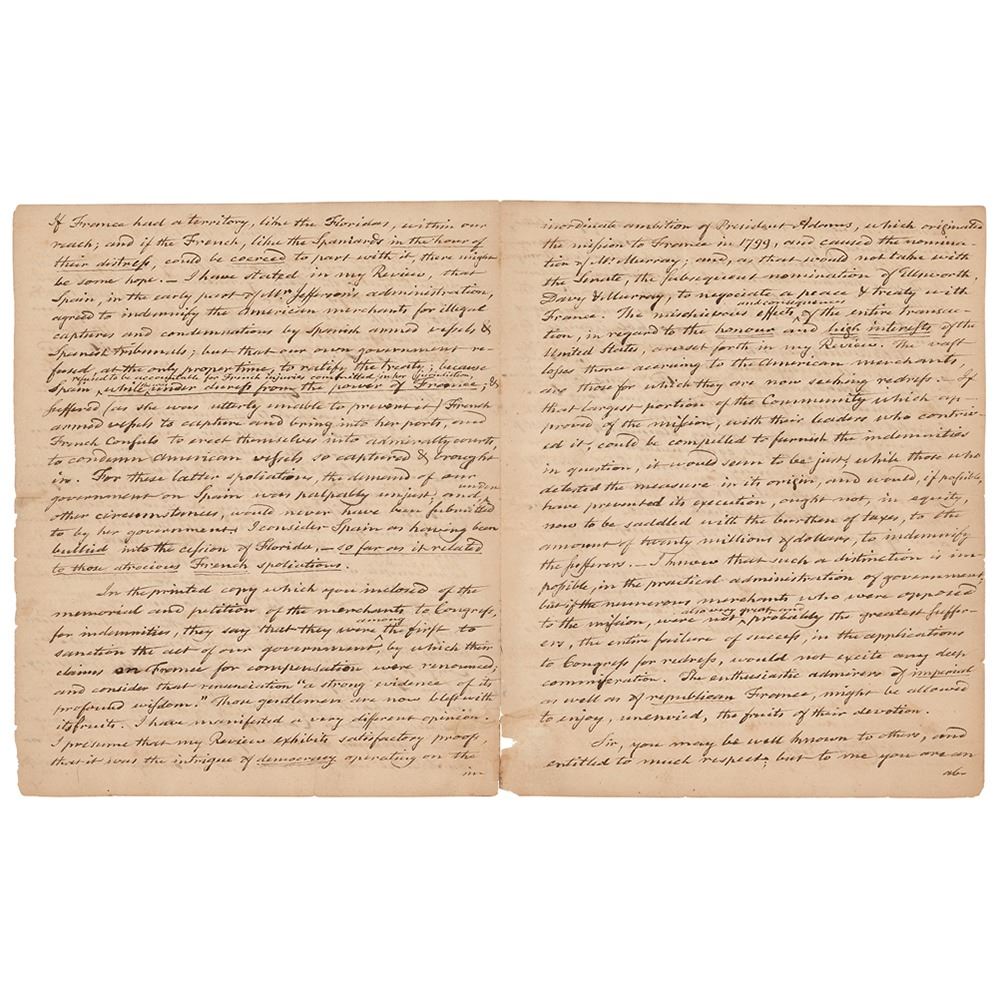 If France had a territory, like the Floridas, within our
reach; and if the French, like the Spaniards in the hour of
their distress, could be coerced to part with it, there might
be some hope. — I have stated in my Review, that
Spain, in the early part of Mr Jefferson's administration,
agreed to indemnify the American merchants for illegal
captures and condemnations by Spanish armed vessels &
Spanish tribunals; but that our own government re-
fused, at the only proper time, to ratify the treaty; because
refused to be accountable for French injuries committed in her jurisdiction,
Spain while under duress from the power of France; &
suffered (as she was utterly unable to prevent it) French
armed vessels to capture and bring into her ports, and
French Consuls to erect themselves into admiralty courts,
to condemn American vessels so captured & brought
in. For these latter spoliations, the demand of our
government on Spain was palpably unjust; and, under
other circumstances, would never have been submitted
to by her government. I consider Spain as having been
bullied into the cession of Florida, — so far as it related
to those atrocious French spoliations.
In the printed copy which you inclosed of the
memorial and petition of the merchants to Congress,
for indemnities, they say that they were among the first to
sanction the act of our government, by which their
claims on France for compensation were renounced;
and consider that renunciation "a strong evidence of its
profound wisdom." Those gentlemen are now blest with
its fruits. I have manifested a very different opinion.
I presume that my Review exhibits satisfactory proofs,
that it was the intrigue of democracy operating on the
in-
inordinate ambition of President Adams, which originated
the mission to France in 1799, and caused the nomina-
tion of Mr. Murray; and, as that would not take with
the Senate, the subsequent nomination of Ellsworth,
Davy & Murray, to negociate a peace & treaty with
France. The mischievous effects and consequences of the entire transac-
tion, in regard to the honour and high interests of the
United States, are set forth in my Review. The vast
losses thence accruing to the American merchants,
are those for which they are now seeking redress. — If
that largest portion of the Community which ap-
proved of the mission, with their leaders who contriv-
ed it, could be compelled to furnish the indemnities
in question, it would seem to be just; while those who
detested the measure in its origin, and would, if possible,
have prevented its execution, ought not, in equity,
now to be saddled with the burthen of taxes, to the
amount of twenty millions of dollars, to indemnify
the sufferers. — I know that such a distinction is im-
possible, in the practical administration of government;
but if the numerous merchants who were opposed
to the mission, were not also very great, and probably the greatest suffer-
ers, the entire failure of success, in the applications
to Congress for redress, would not excite any deep
commiseration. The enthusiastic admirers of imperial
as well as of republican France, might be allowed
to enjoy, unenvied, the fruits of their devotion.
Sir, you may be well known to others, and
entitled to much respect; but to me you are an
ab-